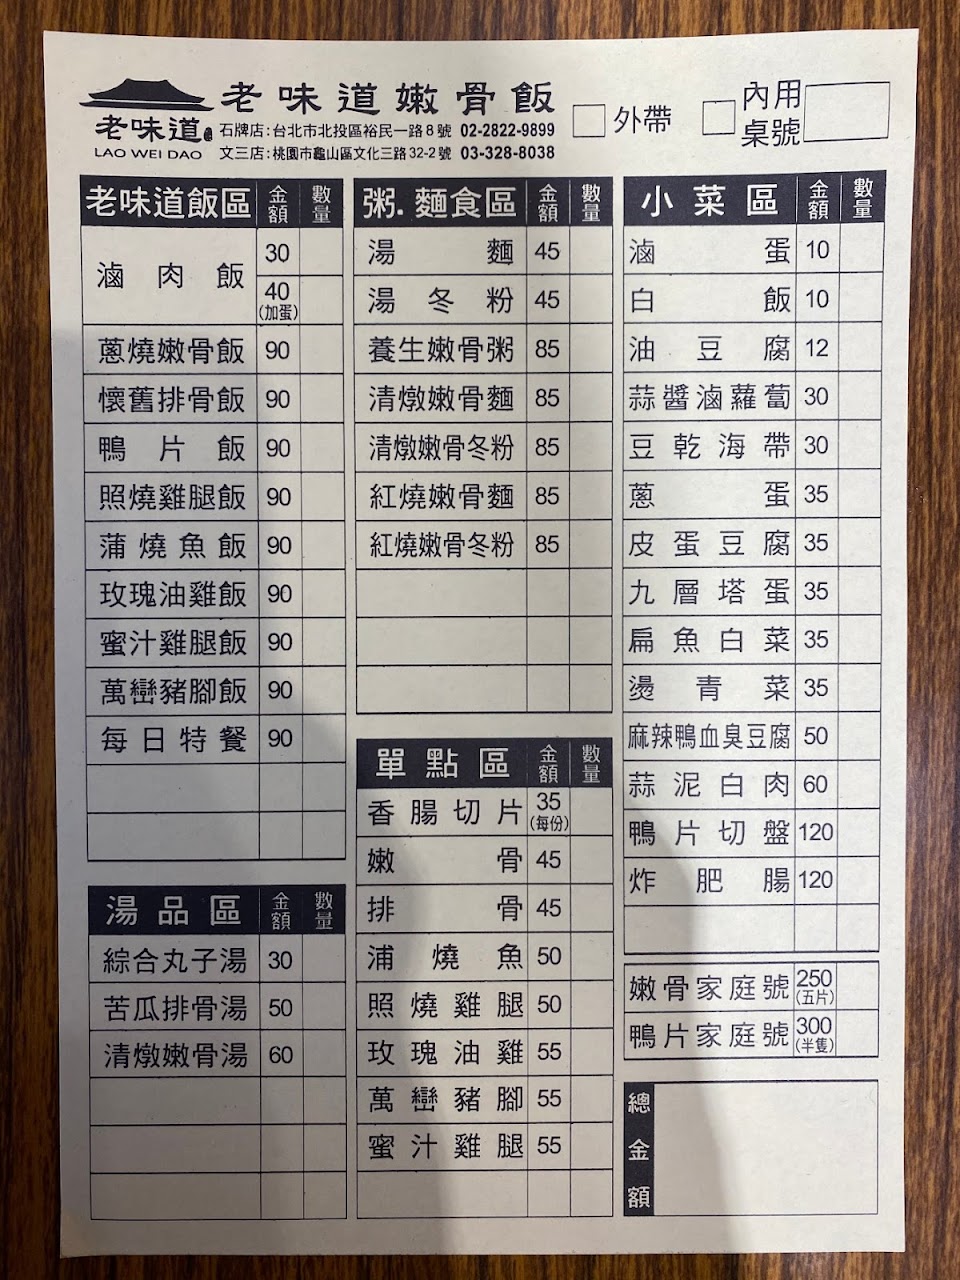 老味道嫩骨飯
老味道
LAO WEI DAO
石牌店:台北市北投區裕民一路8號 02-2822-9899
文三店:桃園市龜山區文化三路32-2號 03-328-8038
外帶
內用
桌號
老味道飯區 金額 數量
滷肉飯 30
40
(加蛋)
蔥燒嫩骨飯 90
懷舊排骨飯 90
鴨片飯 90
照燒雞腿飯 90
蒲燒魚飯 90
玫瑰油雞飯 90
蜜汁雞腿飯 90
萬巒豬腳飯 90
每日特餐 90
湯品區 金額 數量
綜合丸子湯 30
苦瓜排骨湯 50
清燉嫩骨湯 60
粥.麵食區 金額 數量
湯麵 45
湯冬粉 45
養生嫩骨粥 85
清燉嫩骨麵 85
清燉嫩骨冬粉 85
紅燒嫩骨麵 85
紅燒嫩骨冬粉 85
單點區 金額 數量
香腸切片 35
(每份)
嫩骨 45
排骨 45
浦燒魚 50
照燒雞腿 50
玫瑰油雞 55
萬巒豬腳 55
蜜汁雞腿 55
小菜區 金額 數量
滷蛋 10
白飯 10
油豆腐 12
蒜醬滷蘿蔔 30
豆乾海帶 30
蔥蛋 35
皮蛋豆腐 35
九層塔蛋 35
扁魚白菜 35
燙青菜 35
麻辣鴨血臭豆腐 50
蒜泥白肉 60
鴨片切盤 120
炸肥腸 120
嫩骨家庭號 250
(五片)
鴨片家庭號 300
(半隻)
總金額